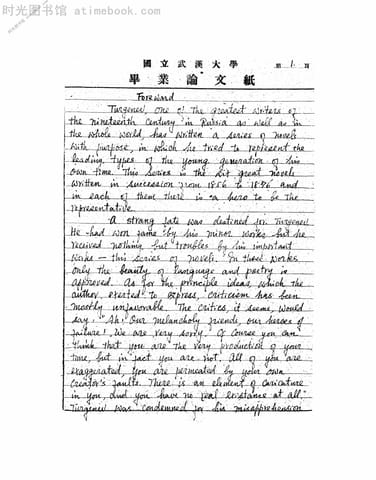 时光图书馆 atimebook.com
國立武漢大學 第 1 頁
畢業論文紙
Foreward
Turgenev, one of the greatest writers of
the nineteenth century in Russia as well as in
the whole world, has written a series of novels
with purpose, in which he tried to represent the
leading types of the young generation of his
own time. This series is the six great novels
written in succession from 1856 to 1876 and
in each of them there is a hero to be the
representative.
A strang fate was destined for Turgenev.
He had won fame by his minor works but he
received nothing but troubles by his important
works — this series of novels. In these works
only the beauty of language and poetry is
approved. As for the principle ideas, which the
author exerted to express, criticism has been
mostly unfavorable. The critics, it seems, would
say: "Ah! Our melancholy friends, our heroes of
failure! We are very sorry. Of course you can
think that you are the very production of your
time, but in fact you are not. All of you are
exaggerated, you are permeated by your own
Creator's faults. There is an element of caricature
in you, and you have no real existance at all."
Turgenev was condemned for his misapprehension